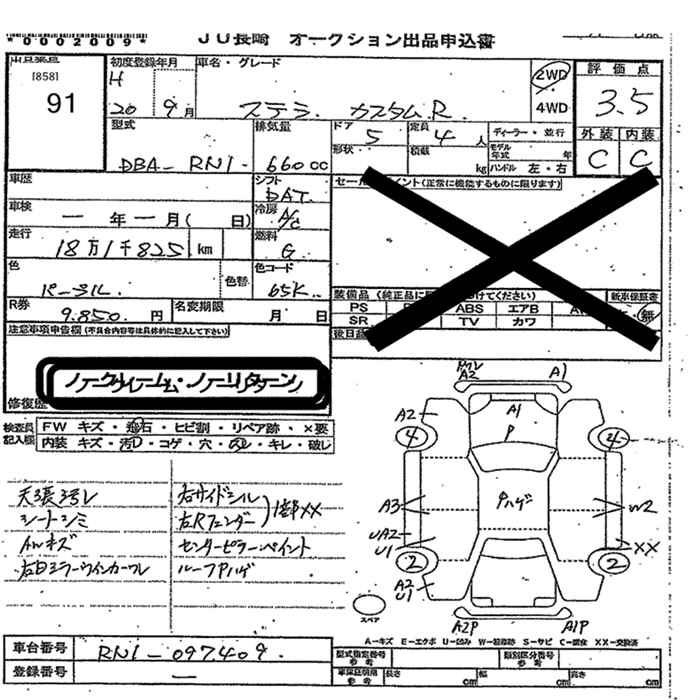 *0002009*
JU長崎 オークション出品申込書
[858]
91
初度登録年月
H
20 9月
車名・グレード
ステラ カスタムR
2WD
4WD
評価点
3.5
外装 内装
C C
型式
DBA-RN1-
排気量
660cc
ドア 5
形状
定員 4人
積載 kg
ディーラー・並行
モデル年式 年
ハンドル 左・右
車歴
シフト
DAT
セールスポイント(正常に機能するものに限ります)
車検
一年一月( 日)
冷房
A/C
走行
18万1千825km
燃料
G
色
パール
色替
色コード
65K
装備品
新車保証書
PS ABS エアB
SR TV カワ
無
R券
9.850円
名変期限
月 日
後日品
注意事項申告欄(不具合内容等は具体的に記入して下さい)
ノークレーム・ノーリターン
修復歴
検査員記入欄
FW キズ・飛石・ヒビ割・リペア跡・×要
内装 キズ・汚れ・コゲ・穴・キレ・破し
シートシミ
AWキズ
右ドアミラーウインカーワレ
右サイドシル
左Rフェンダー
XX
センターピラーペイント
ルーフPハゲ
ワレ
A2
A1
A2
A1
P
4
4
Pハゲ
A3
W2
UA2
U1
XX
2
2
A2
U1
A2P
A1P
スペア
A-キズ E-エクボ U-凹み S-サビ C-腐食 XX-交換済
車台番号
RN1-097409
登録番号
一
型式指定番号
参考
類別区分番号
参考
車庫証明用
参考
長さ cm
幅 cm
高さ cm